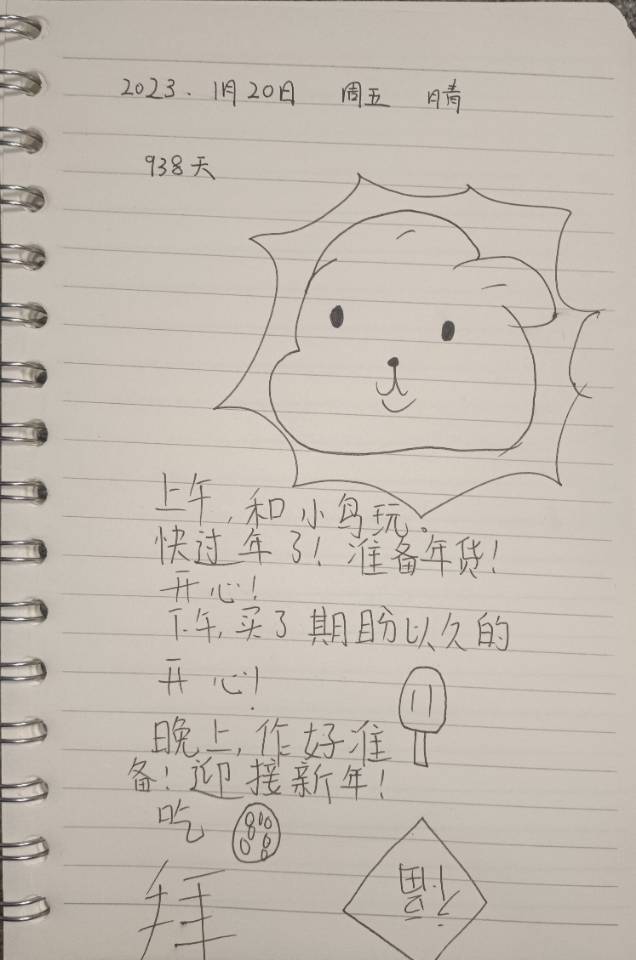 2023.1月20日 周五 晴
938天
上午,和小鸟玩。
快过年了!准备年货!
开心!
下午,买了期盼以久的
开心!
晚上,作好准
备!迎接新年!
吃
拜
福